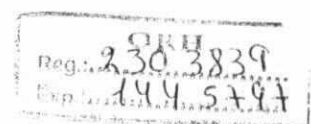 ОКН
Reg.: 230 3839
Exp.: 144 5797